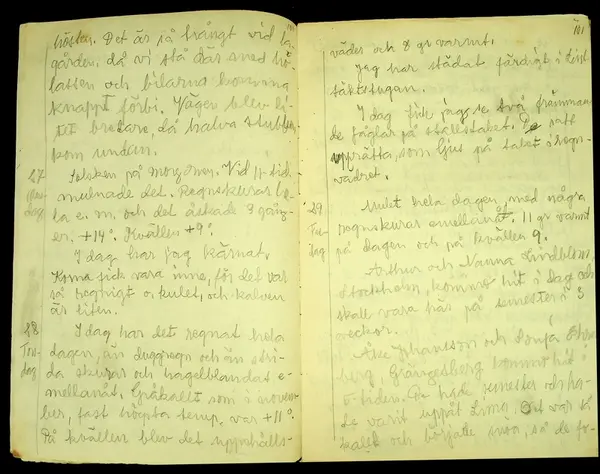 hösten. Det är så trångt vid la-
gården, då vi stå där med hö-
lassen och bilarna komma
knappt förbi. Vägen blev li-
te bredare, då halva stubben
kom undan.
27
Ons
dag
Solsken på morgonen. Vid 11-tid.
mulnade det. Regnskurar he-
la e.m. och det åskade 3 gång-
er, +14°. Kvällen +9°.
I dag har jag kärnat.
Korna fick vara inne, för det var
så regnigt o. kulet, och kalven
är liten.
28
Tors-
dag
I dag har det regnat hela
dagen, än duggregn och än stri-
da skurar och hagelblandat e-
mellanåt. Gråkallt som i novem-
ber, fast högsta temp. var +11°.
På kvällen blev det uppehålls-
101
väder och 8 gr varmt.
Jag har städat färdigt i
I dag fick jag se två främman-
de fåglar på stalltaket. De satt
upprätta, som ljus på taket i regn-
vädret.
29
Fre-
dag
Mulet hela dagen, med några
regnskurar emellanåt. 11 gr varmt
på dagen och på kvällen 9.
Arthur och Nanna Lindblom,
Stockholm, kommo hit i dag och
skall vara här på semester i 3
veckor.
Åke Johansson och Sonja
berg, Grängesberg kommo hit i
De hade semester och ha-
de varit uppåt Lima, Det var så
kallt och började snöa, så de fo-